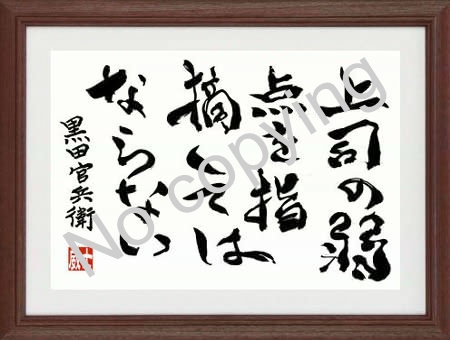 上司の弱
点を指
摘しては
ならない
黒田官兵衛
No copying